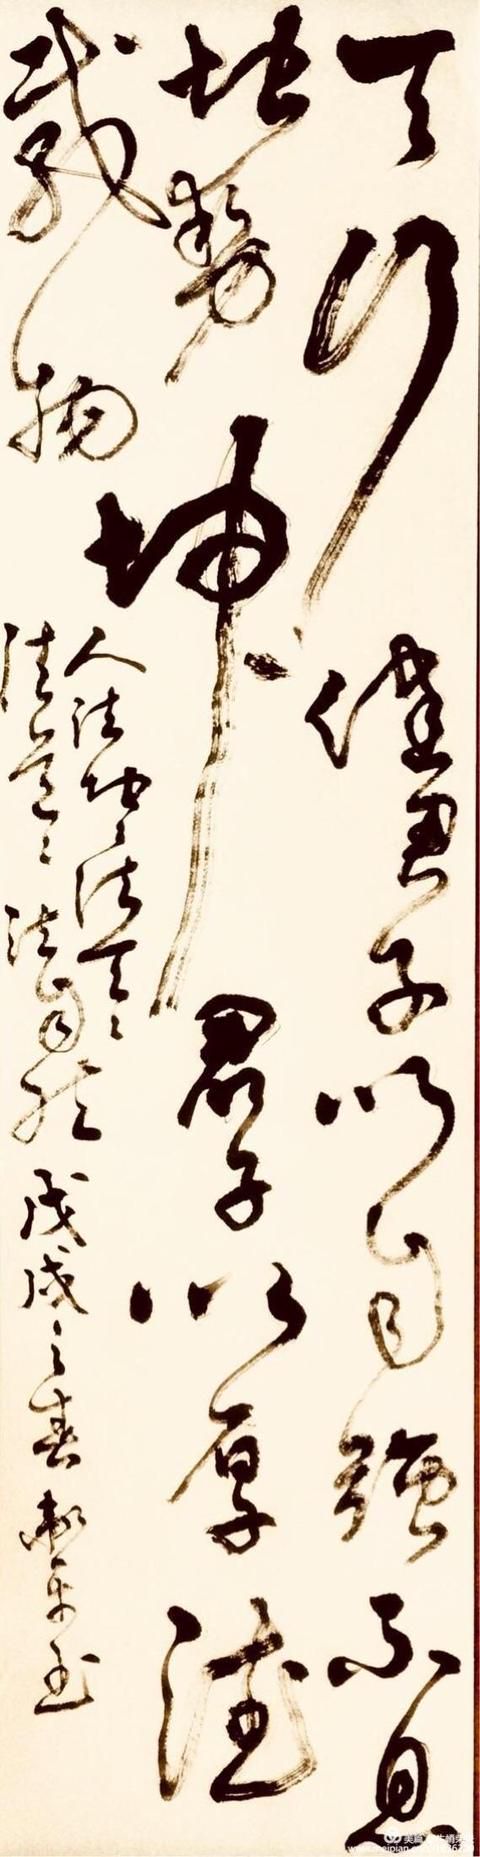 天行健君子以自强不息
地势坤君子以厚德
载物
人法地〻法天〻
法道〻法自然
戊戌之春